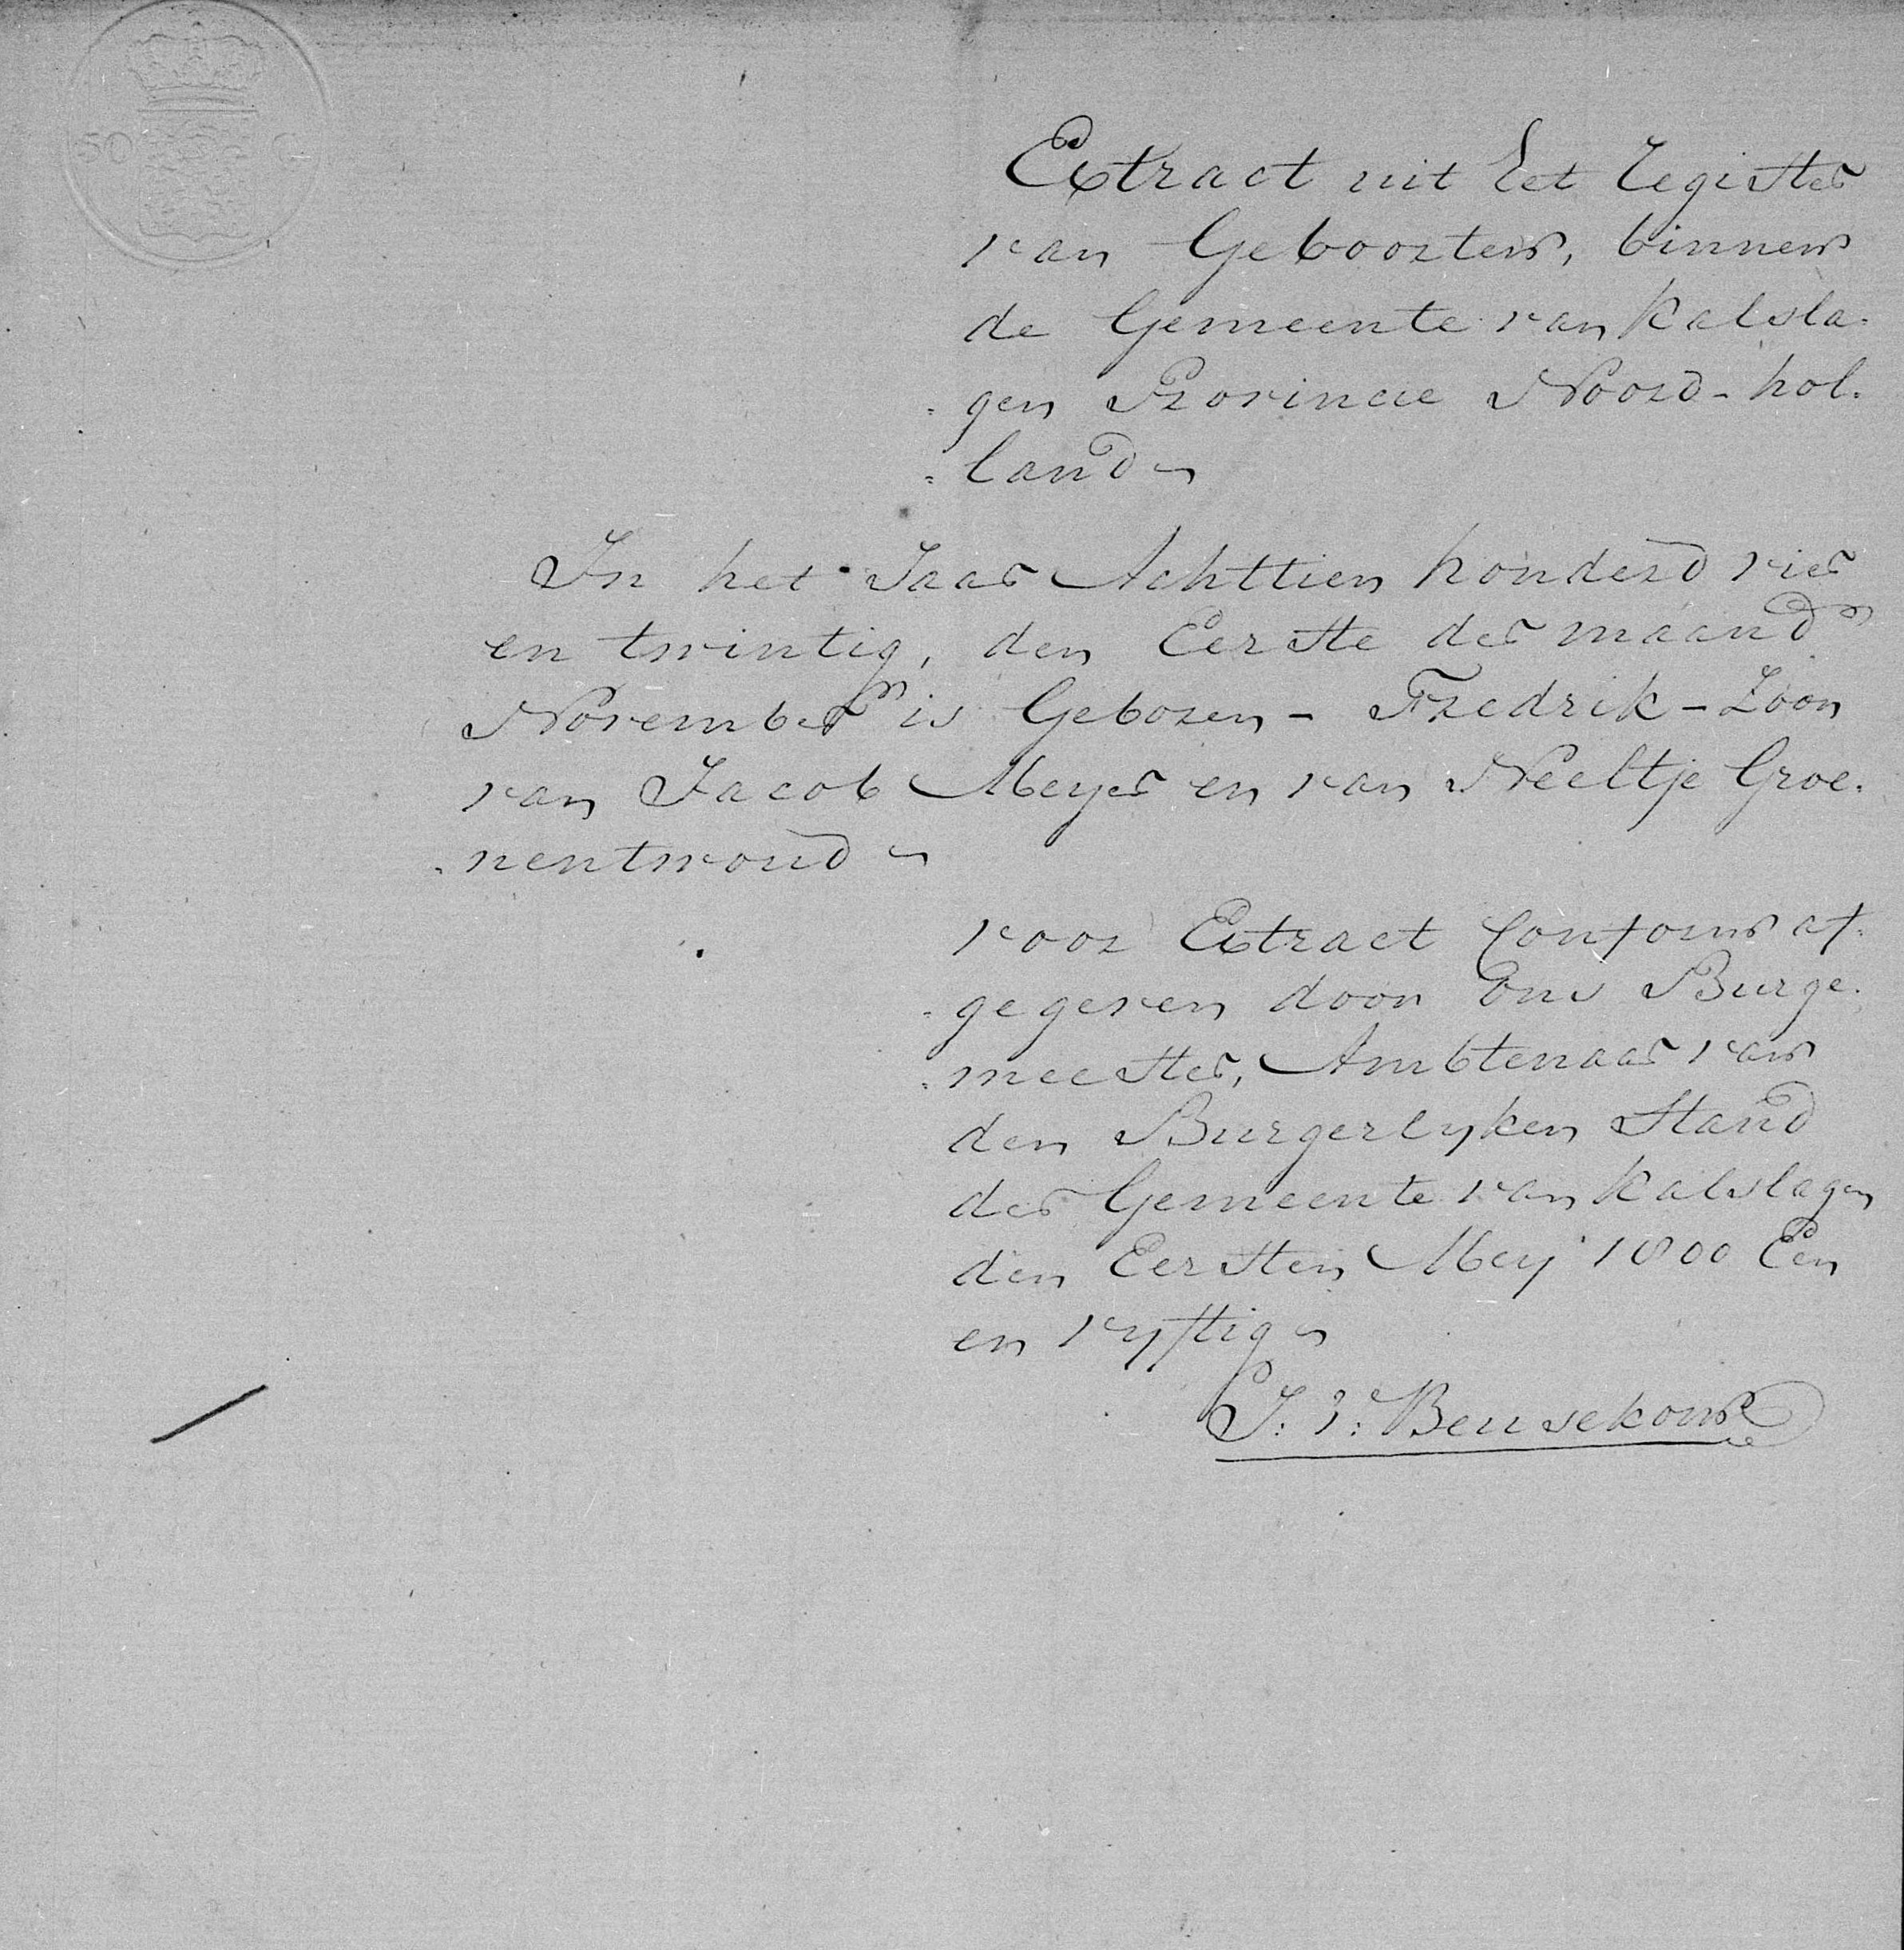 50 C
Extract uit het Register
van Geboorten, binnen
de Gemeente van Kalsla-
gen Provincie Noord-hol-
land
In het Jaar Achttien honderd vier
en twintig, den Eerste der maand
November is Geboren - Fredrik - Zoon
van Jacob Meyer en van Neeltje Groe-
nentwoud
voor Extract Conform af-
gegeven door Ons Burge-
meester, Ambtenaar van
den Burgerlyken Stand
der Gemeente van Kalslagen
den Eersten Mey 1800 Een
en vyftig
Beusekom